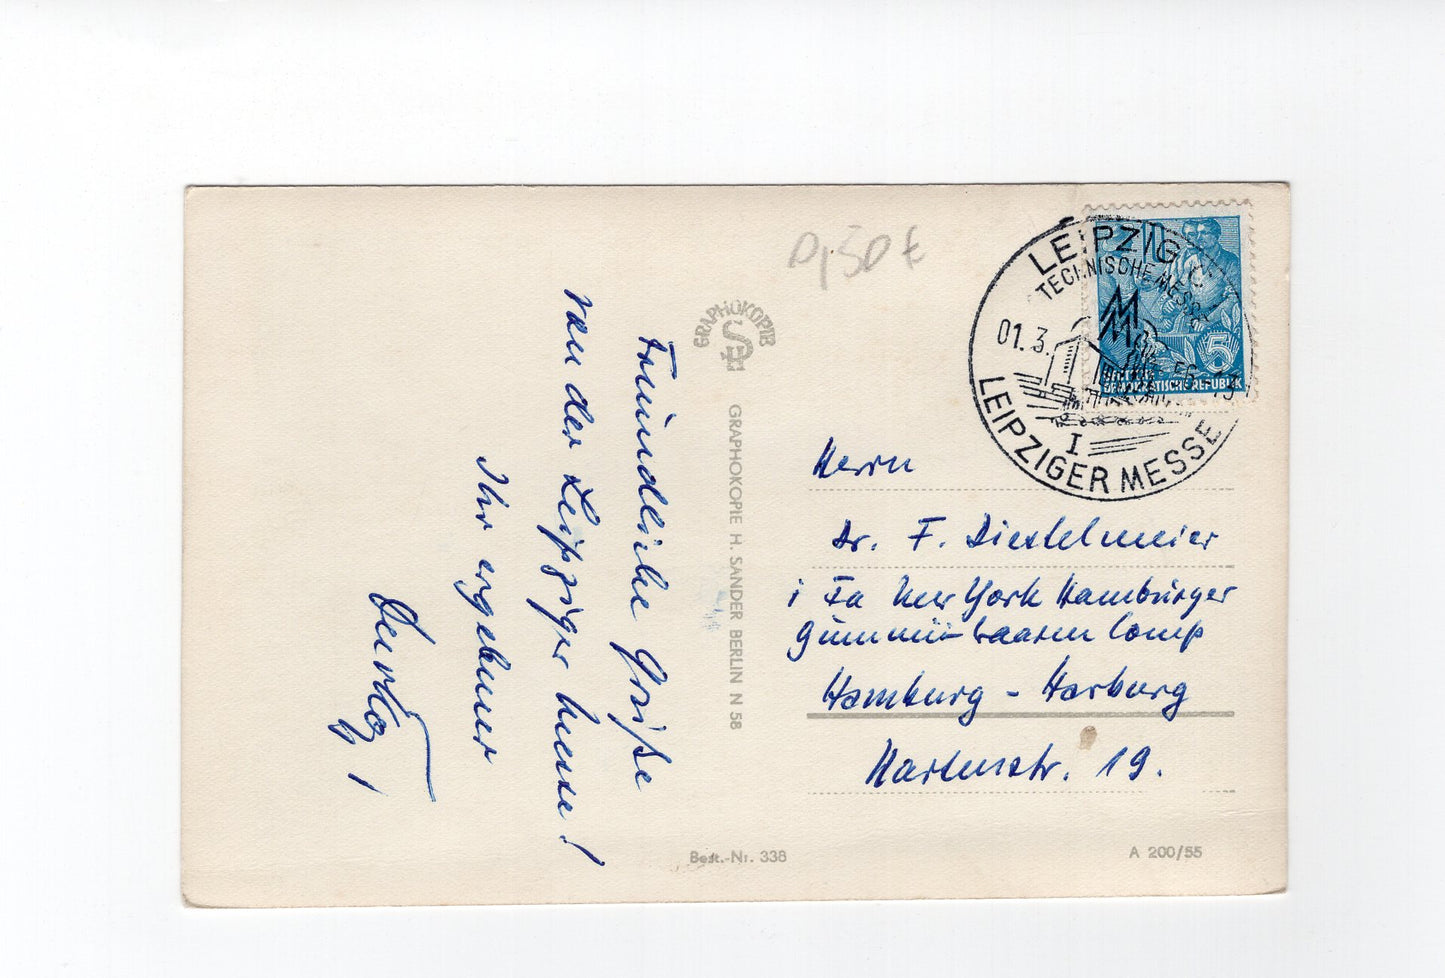 0,50 €
GRAPHOKOPIE
GRAPHOKOPIE H. SANDER BERLIN N 58
Freundliche Grüße
von der Leipziger Messe!
Ihr ergebener
LEIPZIG
TECHNISCHE MESSE
MM
01.3. 56-13
I
LEIPZIGER MESSE
5
DEUTSCHE
DEMOKRATISCHE REPUBLIK
Herrn
Dr. F. Diestelmeier
i Fa New York Hamburger
Gummi-Waaren Comp
Hamburg - Harburg
19.
Best.-Nr. 338
A 200/55